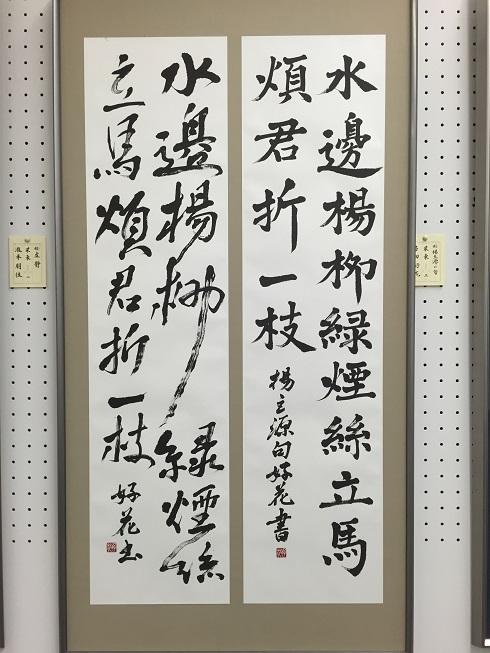 水邊楊柳綠煙絲立馬
煩君折一枝
楊立源句好花書
水邊楊柳綠煙絲
立馬煩君折一枝
好花書